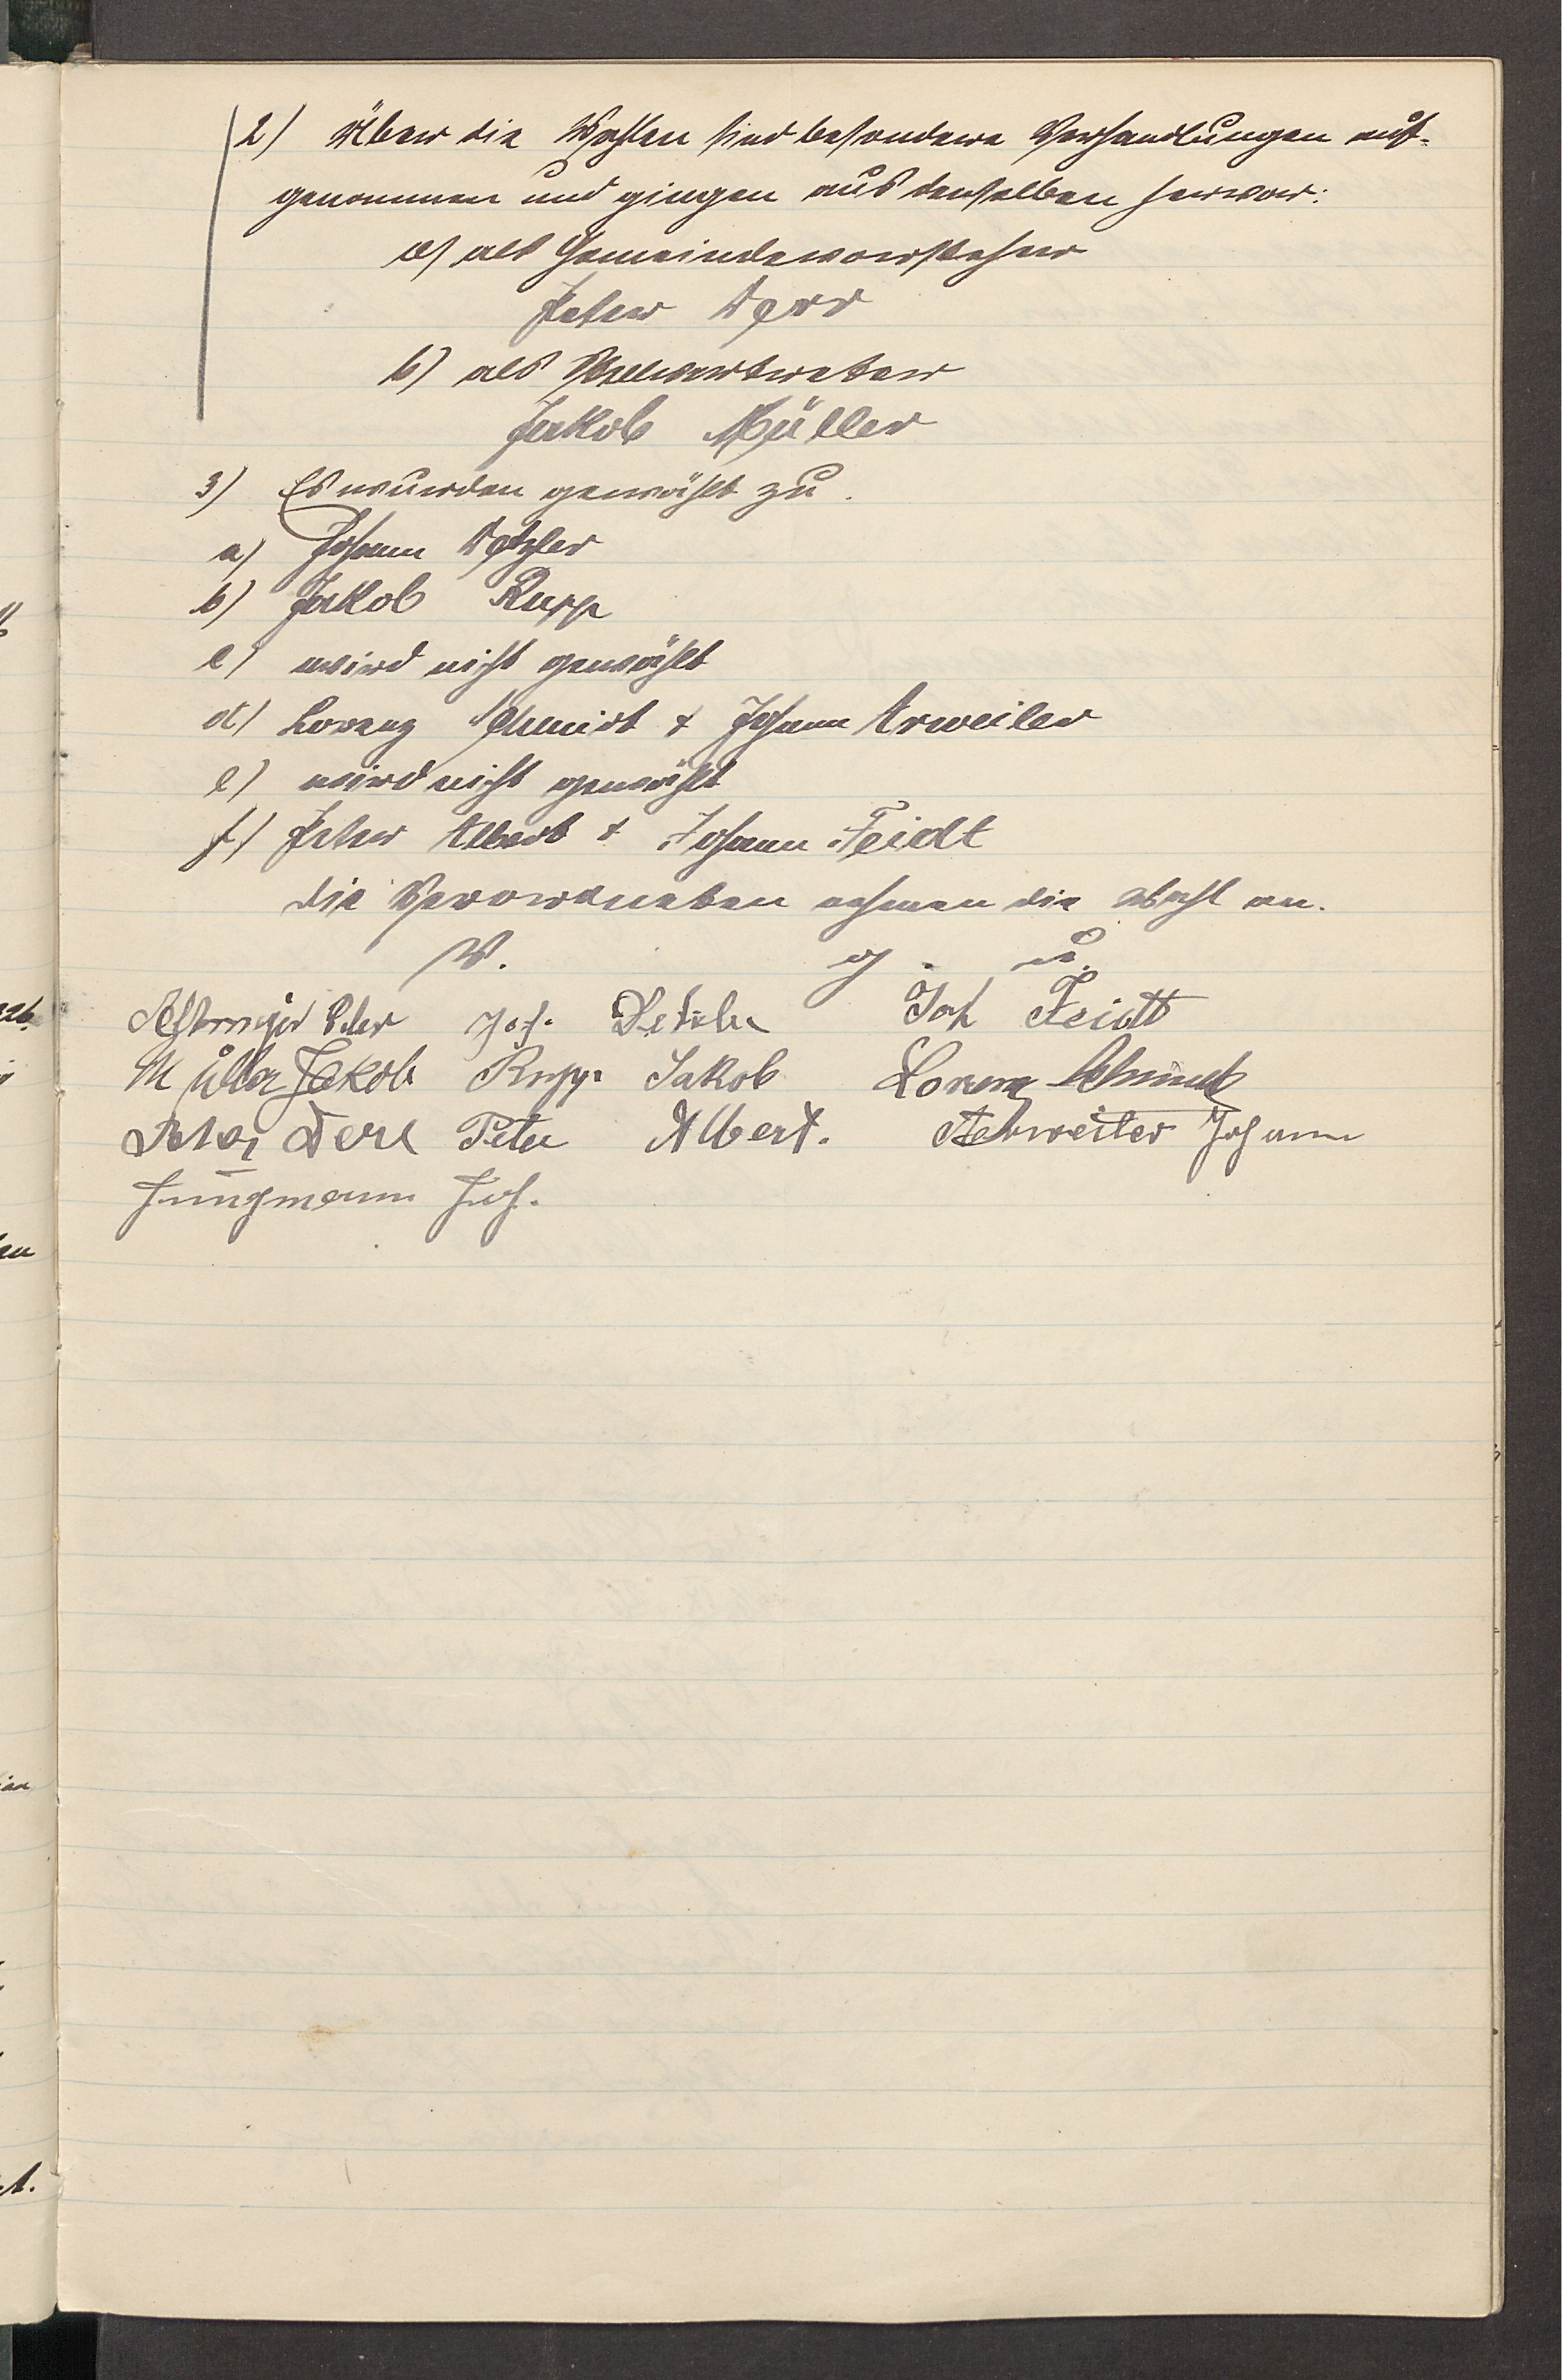 2) Über die Wahlen sind besondere Verhandlungen auf-
genommen und gingen aus denselben hervor:
a) als Gemeindevorsteher
Peter Derr
b) als Stellvertreter
Jakob Müller
3) Es wurden gewählt zu
a) Johann Detzler
b) Jakob Rupp
c) wird nicht gewählt
d) Lorenz Schmidt + Johann Arweiler
e) wird nicht gewählt
f) Peter Albert + Johann Feidt
Die Verordneten nehmen die Wahl an.
V. g. u.
Peter Joh. Detzler Joh Feidt
Müller Jakob Rupp Jakob Lorenz Schmidt
Peter Derr Peter Albert. Arweiler Johann
Jungmann Joh.